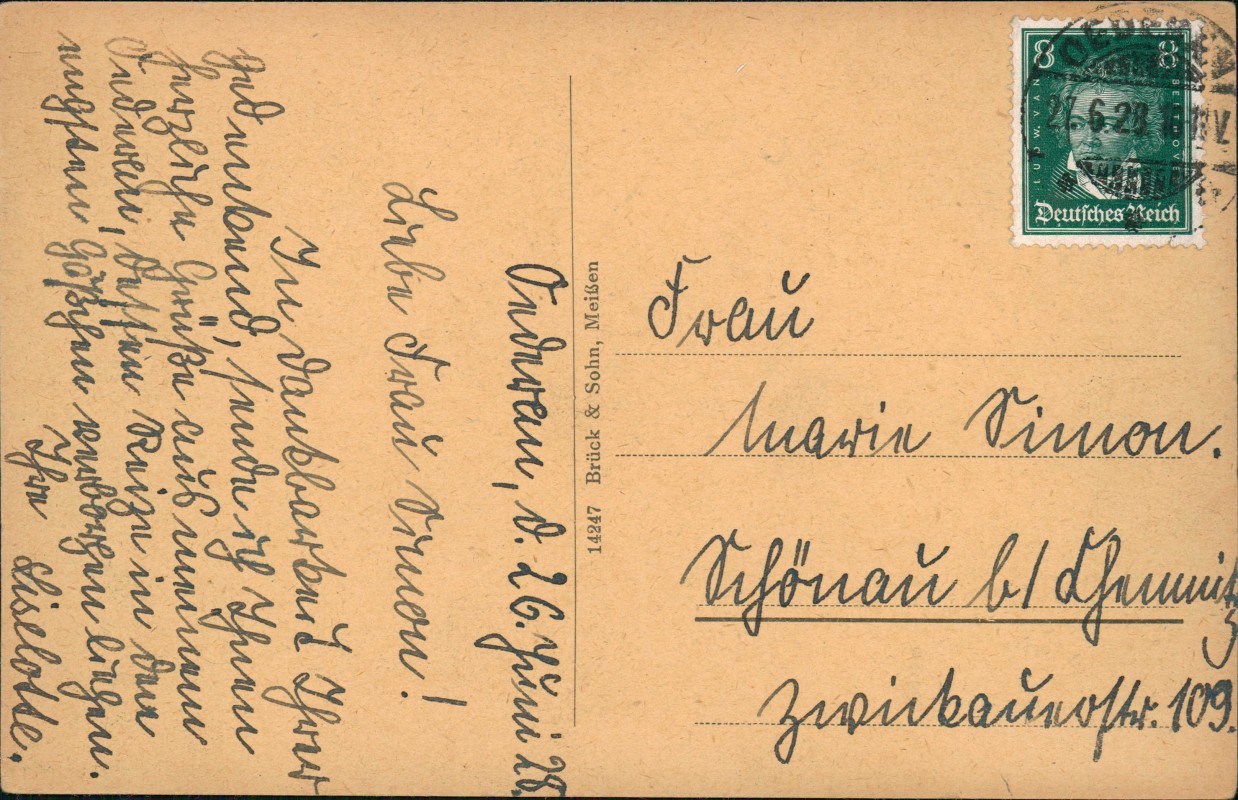 Oederan, d. 26. Juni 28.
Liebe Frau Simon!
In Dankbarkeit Ihrer
gedenkend, sende ich Ihnen
herzliche Grüße aus meinem
Oederan, dessen Reize in den
engsten Gäßchen verborgen liegen.
Ihre Liselotte.
14247 Brück & Sohn, Meißen
8 8
LUDW. VAN BEETHOVEN
Deutsches Reich
OEDERAN
27.6.28
Frau
Marie Simon.
Schönau b/ Chemnitz
Zwickauerstr. 109.